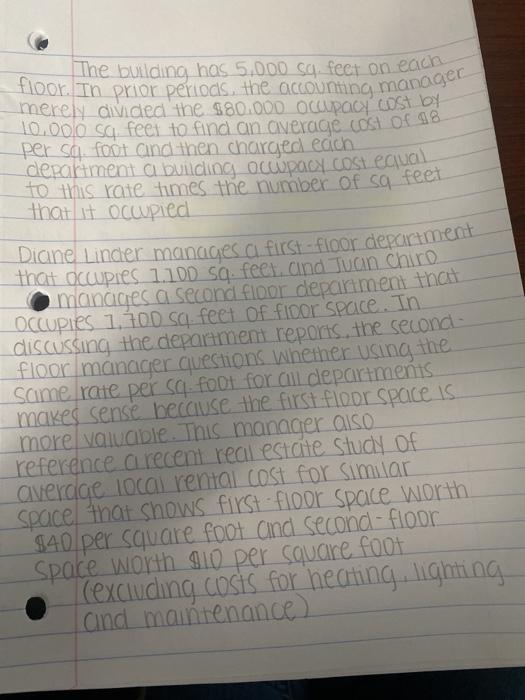 The building has 5,000 sq. feet on each
floor. In prior periods, the accounting manager
merely divided the $80,000 occupacy cost by
10,000 sq feet to find an average cost of $8
per sq. foot and then charged each
department a building occupacy cost equal
to this rate times the number of sq feet
that it occupied
Diane Linder manages a first-floor department
that occupies 1.100 sq. feet, and Juan Chiro
manages a second floor department that
occupies 1,700 sq. feet of floor space. In
discussing the department reports, the second-
floor manager questions whether using the
same rate per sq. foot for all departments
makes sense because the first floor space is
more valuable. This manager also
reference a recent real estate study of
average local rental cost for similar
space that shows first-floor space worth
$40 per square foot and second-floor
space worth $10 per square foot
(excluding costs for heating, lighting
and maintenance)